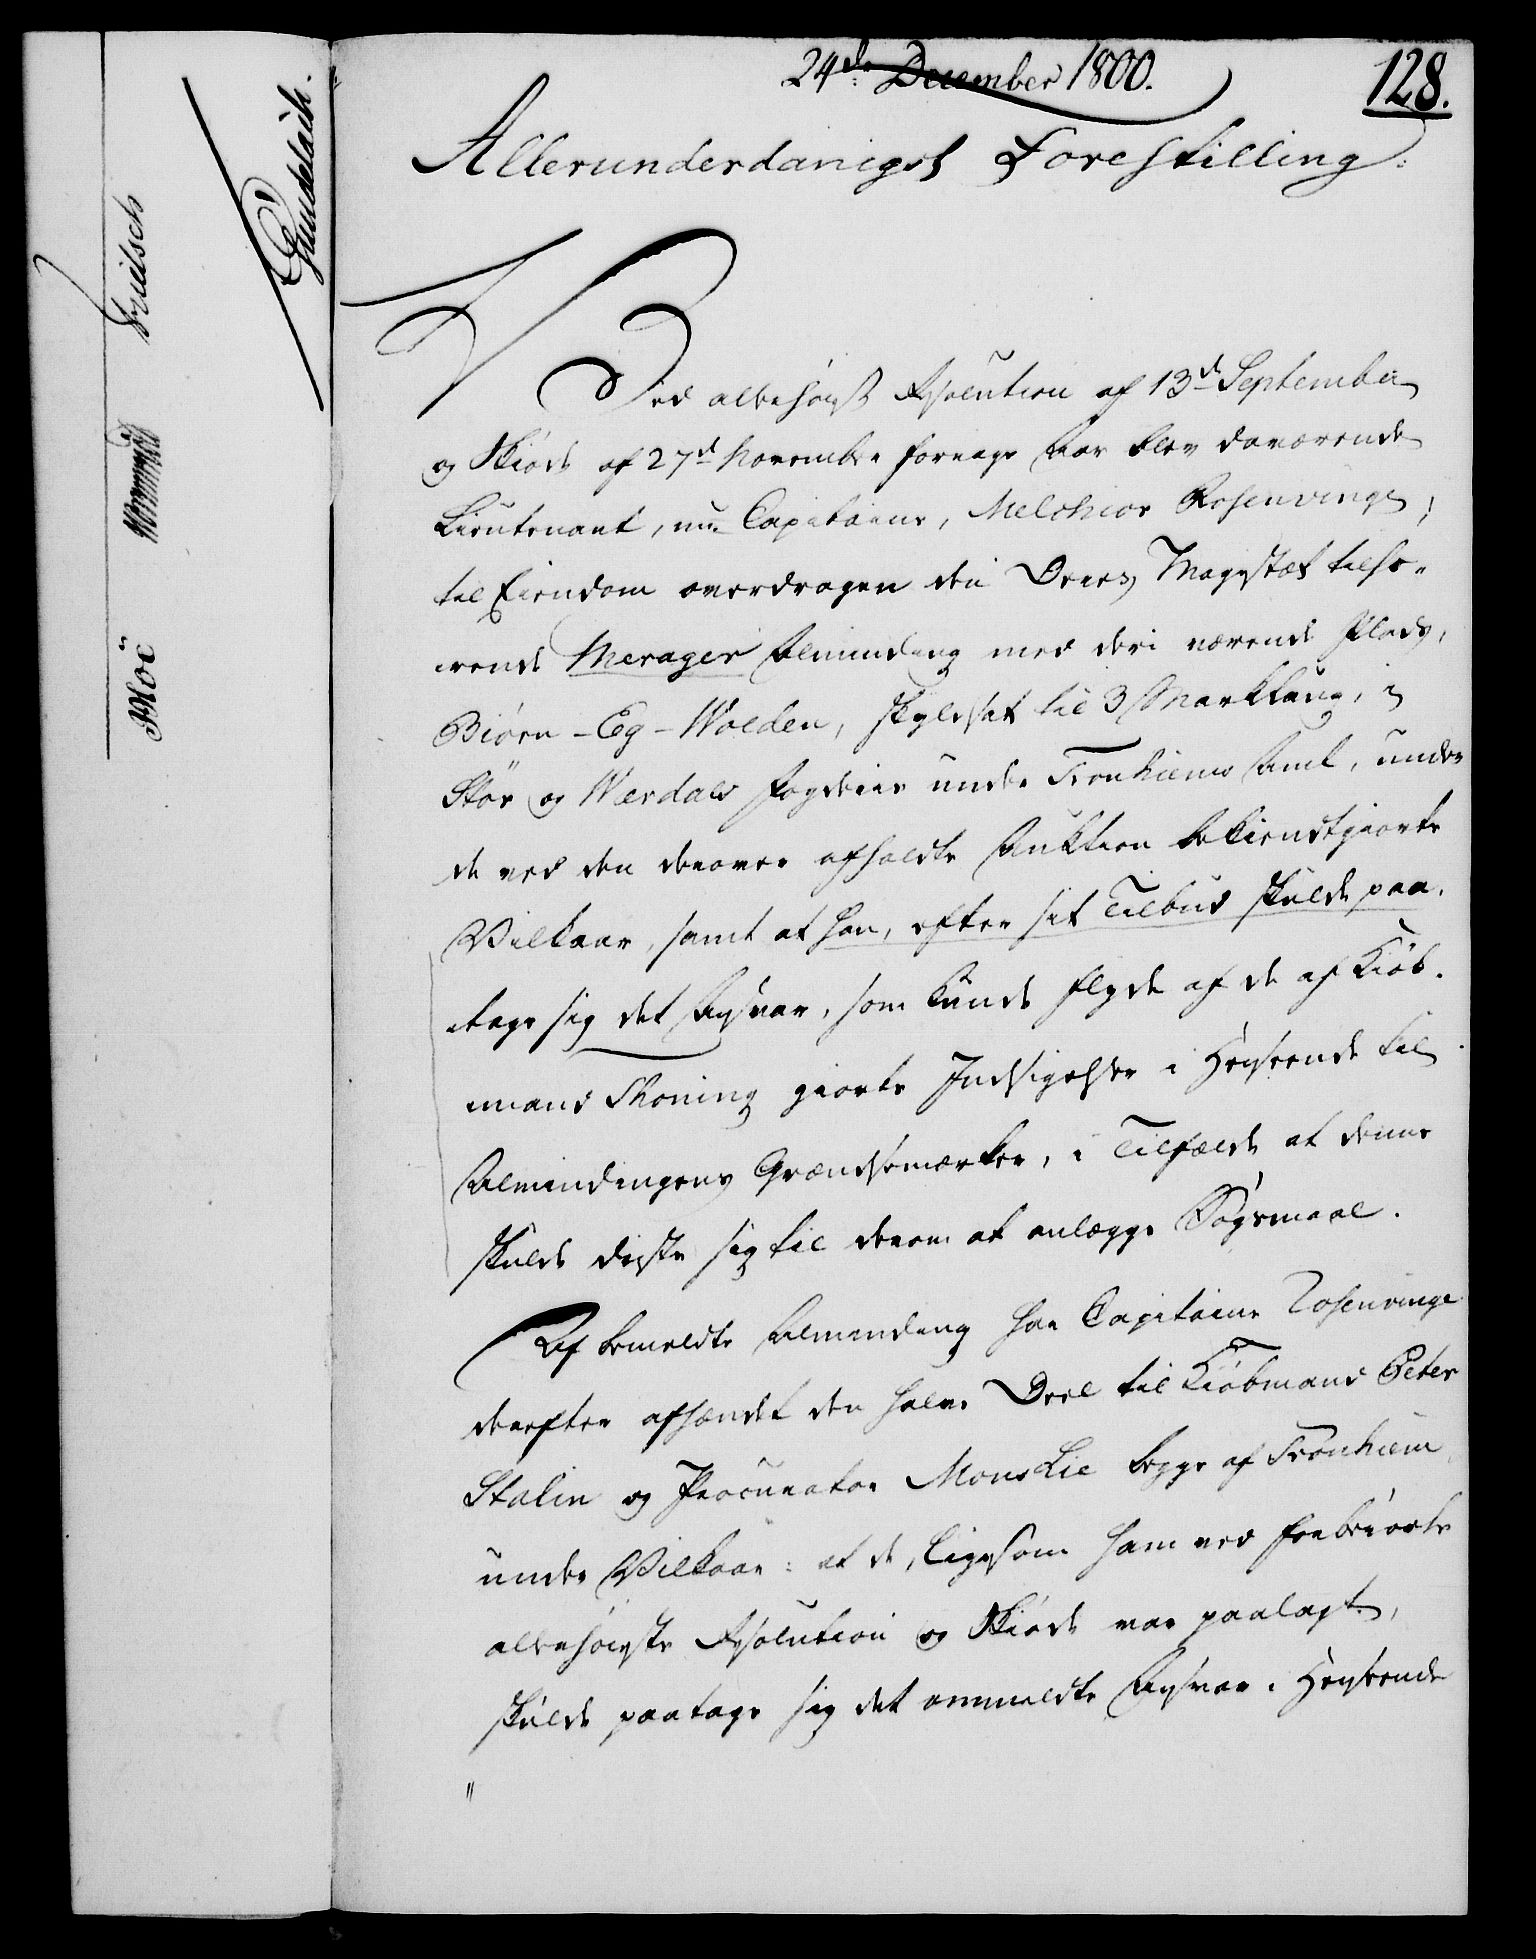 24de December 1800.
128.
Allerunderdanigst Forestilling.
Ved allerhöist Resolution af 13d September
og Skiöde af 27d November forrige Aar blev daværende
Lieutenant, nu Capitaine, Melchior Rosenvinge,
til Eiendom overdragen den Deres Majestæt tilhö-
rende Merager Alminding med deri værende Plads,
Biörn-Eg-Wolden, skyldsat til 3 Marklaug, i
Stör og Werdals Fogderie under Tronhiems Amt, under
de ved den derover afholdte Auktion bekiendtgiorte
Vilkaar, samt at han, efter sit Tilbud skulde paa-
tage sig det Ansvar, som kunde flyde af de af Kiöb-
mand Thoning giorte Indsigelser i Henseende til
Almindingens Grændsemærker, i Tilfælde at denne
skulde driste sig til derom at anlægge Sögsmaal.
Af bemeldte Alminding har Capitaine Rosenvinge
derefter afhændet den halve Deel til Kiöbmand Peter
Stalin og Procurator Mons Lie begge af Tronhiem,
under Vilkaar: at de, ligesom ham ved forberörte
allerhöieste Resolution og Skiöde var paalagt,
skulde paatage sig det ommeldte Ansvar i Henseende
"
Gundelach.
Frilsch
Moë